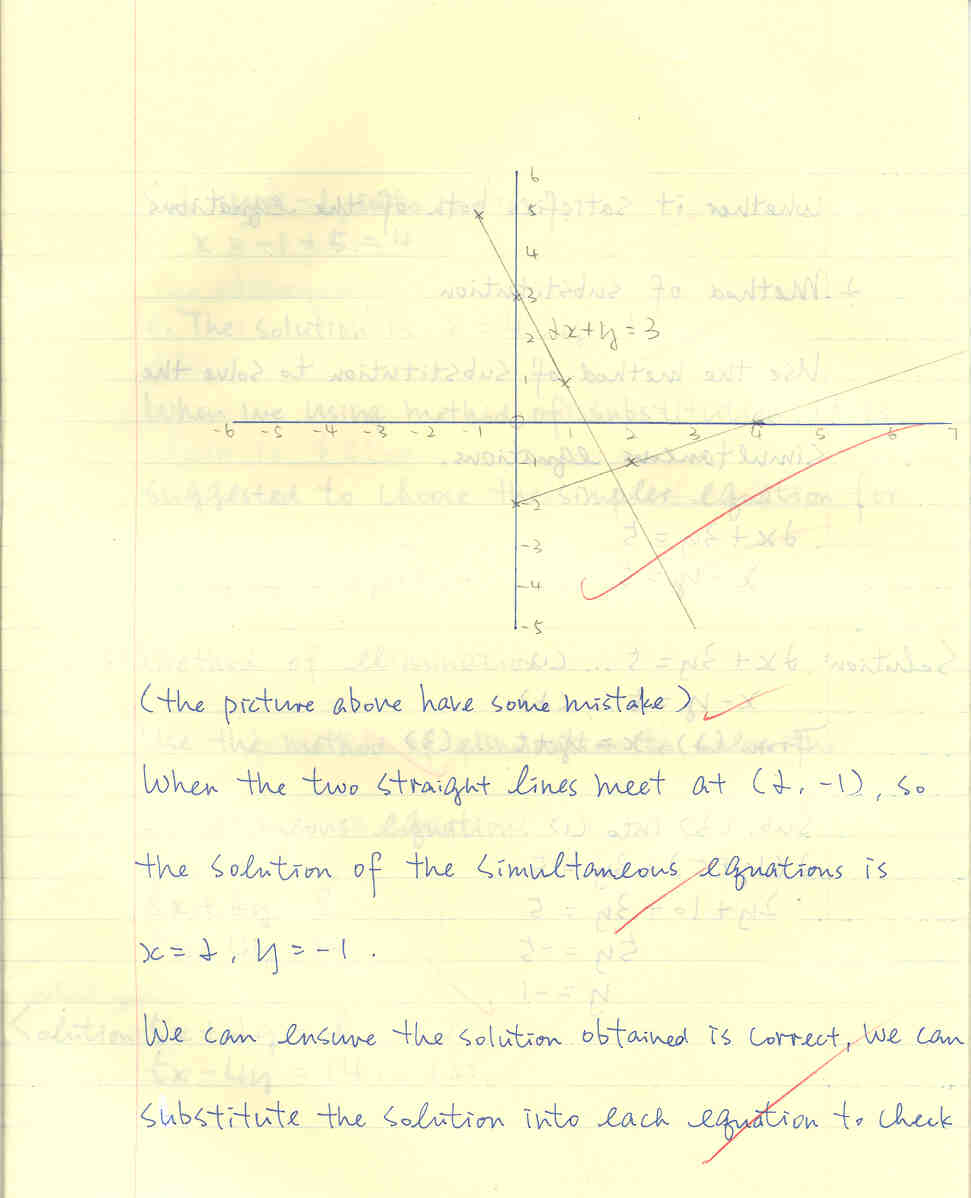 6
5
4
3
2
2x+y=3
1
-6 -5 -4 -3 -2 -1 0 1 2 3 4 5 6 7
-1
-2
-3
-4
-5
(the picture above have some mistake)
When the two straight lines meet at (2, -1), so
the solution of the simultaneous equations is
x=2, y=-1.
We can ensure the solution obtained is correct, we can
substitute the solution into each equation to check